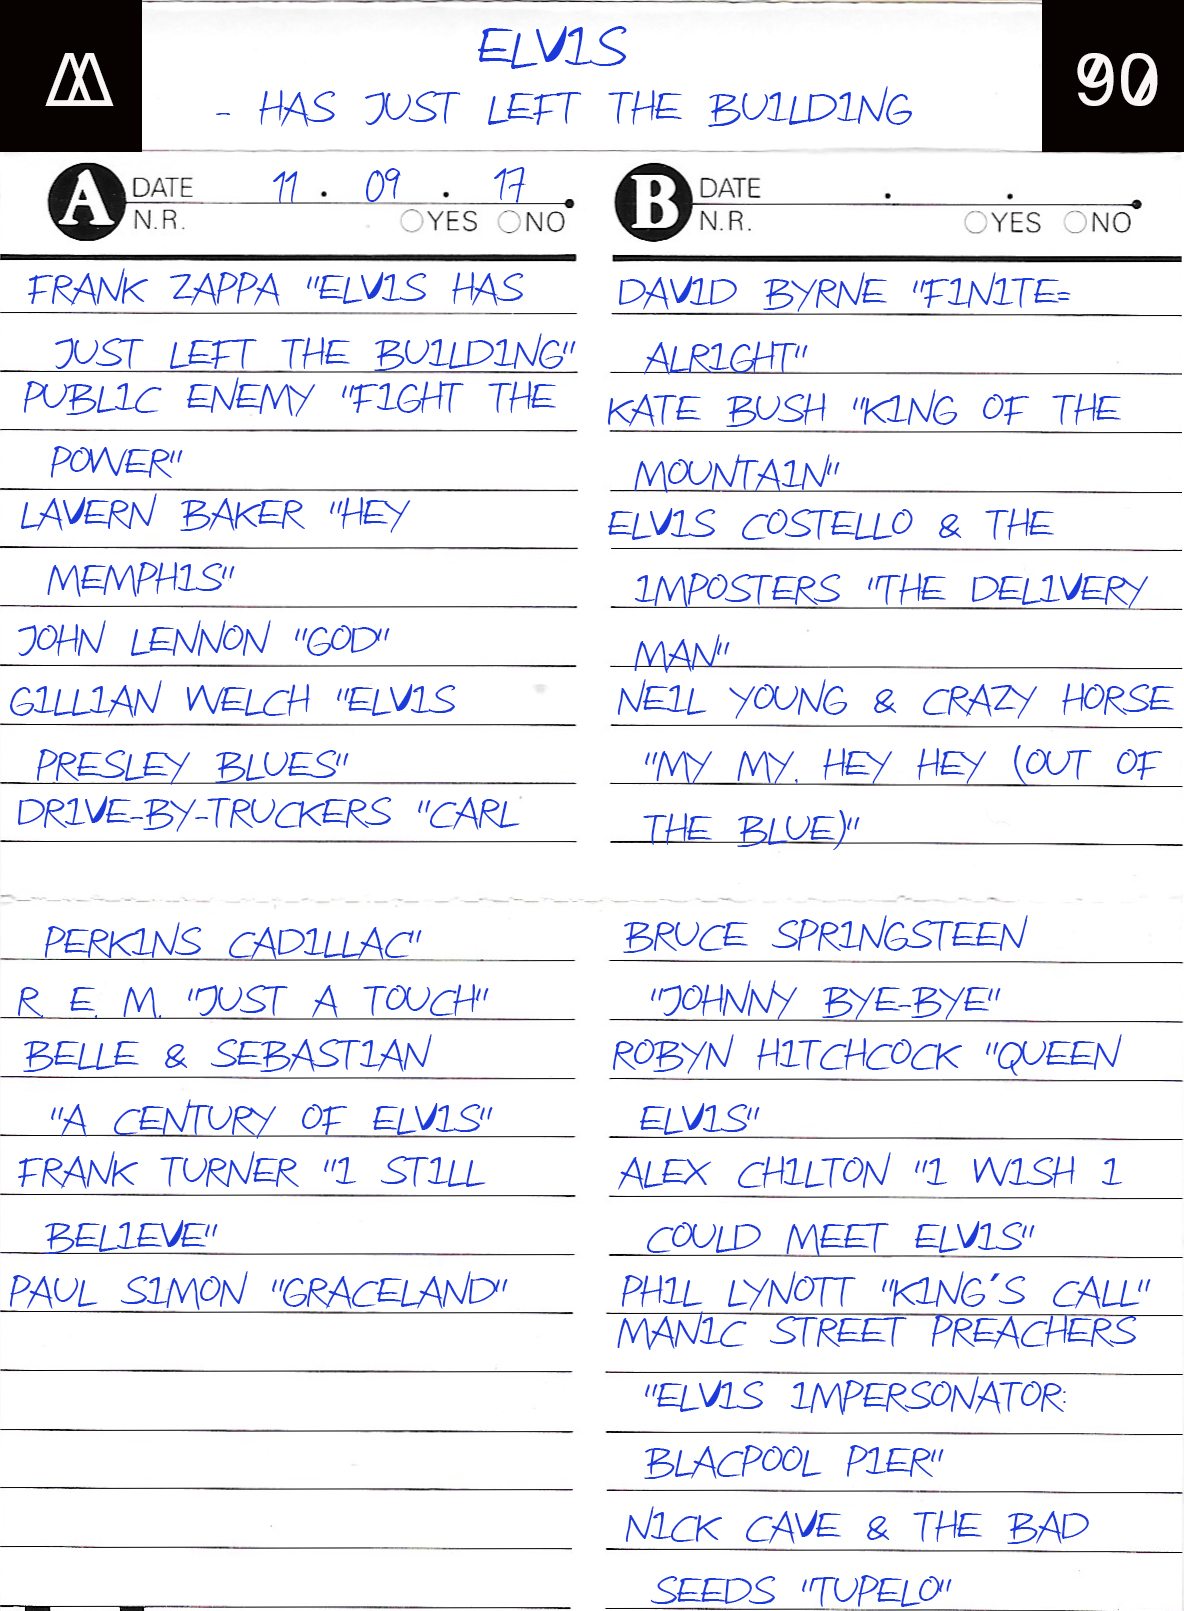 ELV1S
- HAS JUST LEFT THE BU1LD1NG
90
A DATE 11 . 09 . 17
N.R. YES NO
FRANK ZAPPA "ELV1S HAS
JUST LEFT THE BU1LD1NG"
PUBL1C ENEMY "F1GHT THE
POWER"
LAVERN BAKER "HEY
MEMPH1S"
JOHN LENNON "GOD"
G1LL1AN WELCH "ELV1S
PRESLEY BLUES"
DR1VE-BY-TRUCKERS "CARL
PERK1NS CAD1LLAC"
R. E. M. "JUST A TOUCH"
BELLE & SEBAST1AN
"A CENTURY OF ELV1S"
FRANK TURNER "1 ST1LL
BEL1EVE"
PAUL S1MON "GRACELAND"
B DATE . .
N.R. YES NO
DAV1D BYRNE "F1N1TE=
ALR1GHT"
KATE BUSH "K1NG OF THE
MOUNTA1N"
ELV1S COSTELLO & THE
1MPOSTERS "THE DEL1VERY
MAN"
NE1L YOUNG & CRAZY HORSE
"MY MY, HEY HEY (OUT OF
THE BLUE)"
BRUCE SPR1NGSTEEN
"JOHNNY BYE-BYE"
ROBYN H1TCHCOCK "QUEEN
ELV1S"
ALEX CH1LTON "1 W1SH 1
COULD MEET ELV1S"
PH1L LYNOTT "K1NG´S CALL"
MAN1C STREET PREACHERS
"ELV1S 1MPERSONATOR:
BLACPOOL P1ER"
N1CK CAVE & THE BAD
SEEDS "TUPELO"